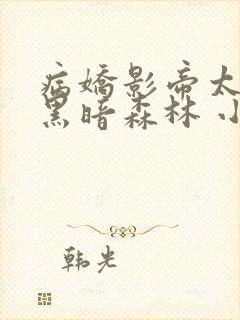 病娇影帝太
黑暗森林 小
韩光